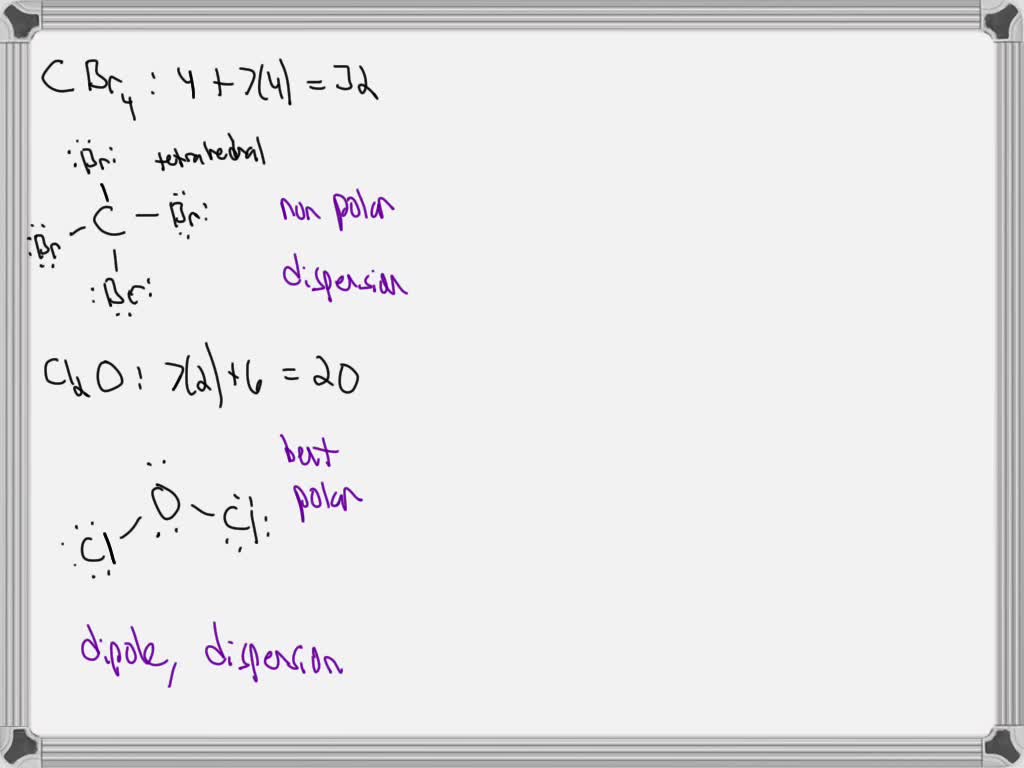 CBr₄ : 4 + 7(4) = 32
:Br: tetrahedral
:Br - C - Br:
:Br:
non polar
dispersion
Cl₂O : 7(2) + 6 = 20
Cl - O - Cl:
bent
polar
dipole, dispersion